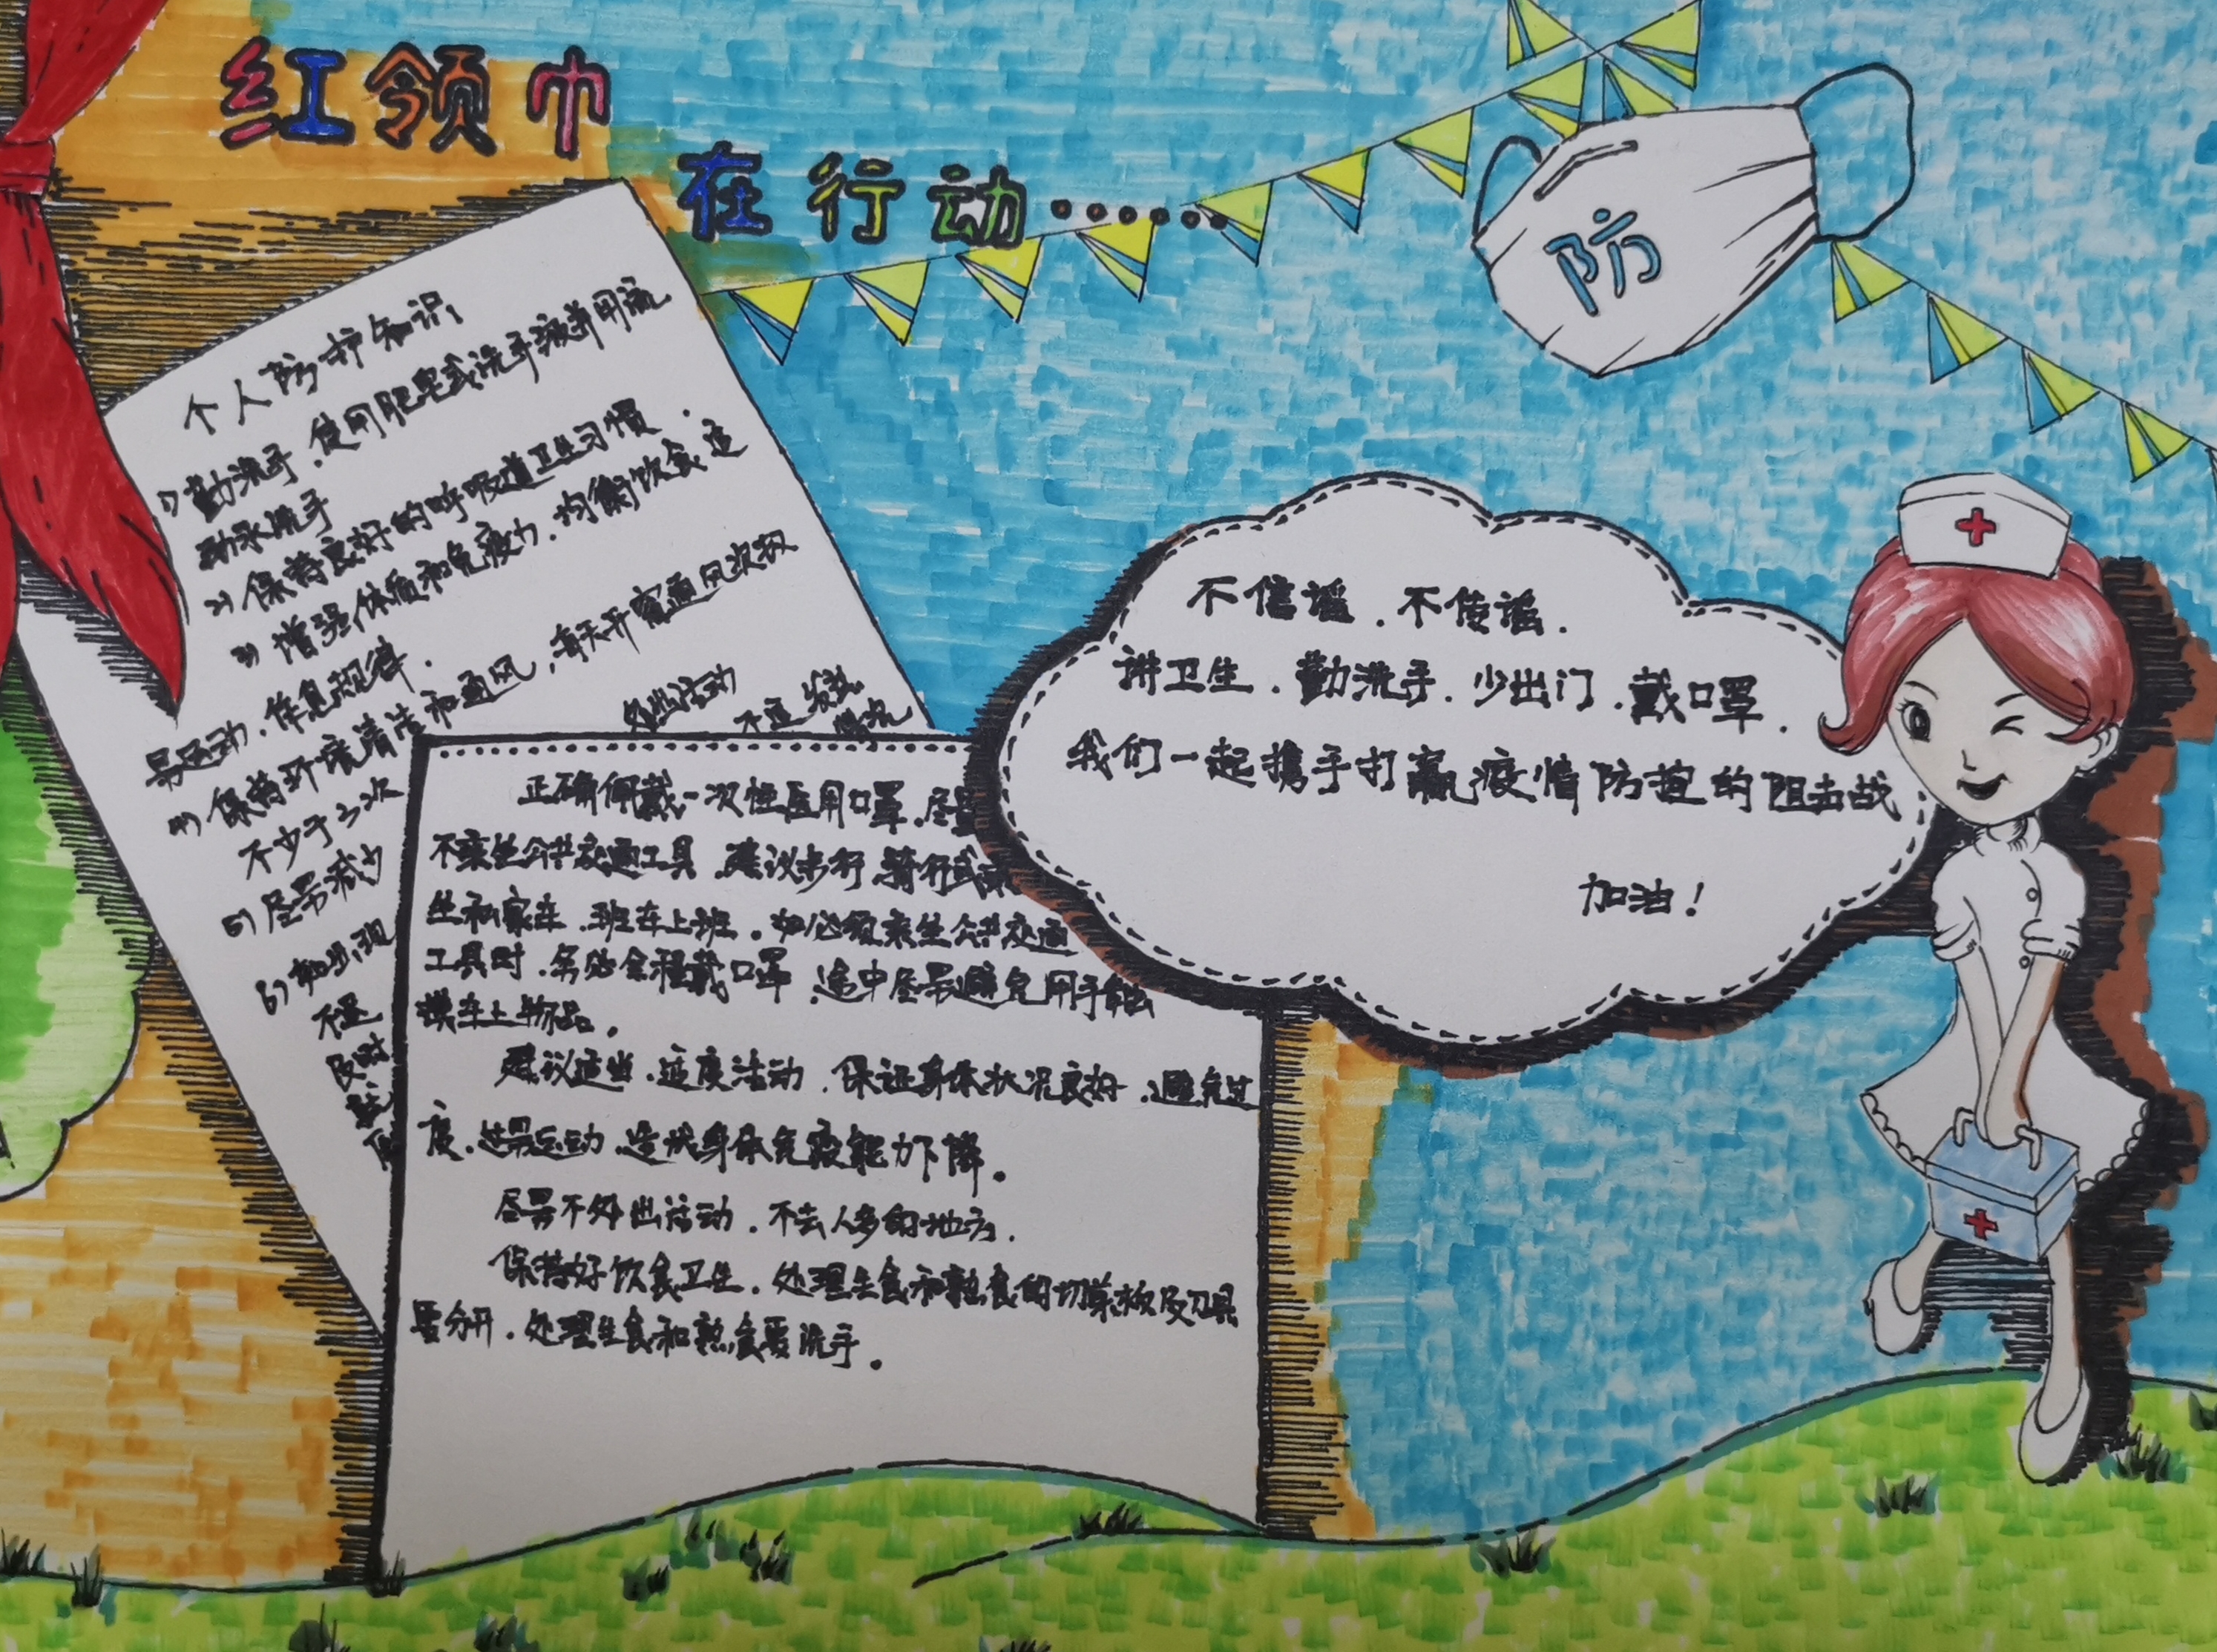 红领巾
在行动······
防
个人防护知识
1) 勤洗手，使用肥皂或洗手液并用流
动水洗手
2) 保持良好的呼吸道卫生习惯.
3) 增强体质和免疫力，均衡饮食、适
量运动，作息规律.
4) 保持环境清洁和通风，每天开窗通风次数
不少于3次
5) 尽量减少
外出活动
6) 如出现
不适 发热
不适
及时
正确佩戴一次性医用口罩，尽量
不乘坐公共交通工具，建议步行、骑行或乘
坐私家车、班车上班。如必须乘坐公共交通
工具时，务必全程戴口罩，途中尽量避免用手触
摸车上物品。
建议适当、适度活动，保证身体状况良好，避免过
度、过量运动，造成身体免疫能力下降。
尽量不外出活动，不去人多的地方.
保持好饮食卫生，处理生食和熟食的切菜板及刀具
要分开，处理生食和熟食要洗手。
不信谣，不传谣.
讲卫生，勤洗手，少出门，戴口罩.
我们一起携手打赢疫情防控的阻击战
加油！